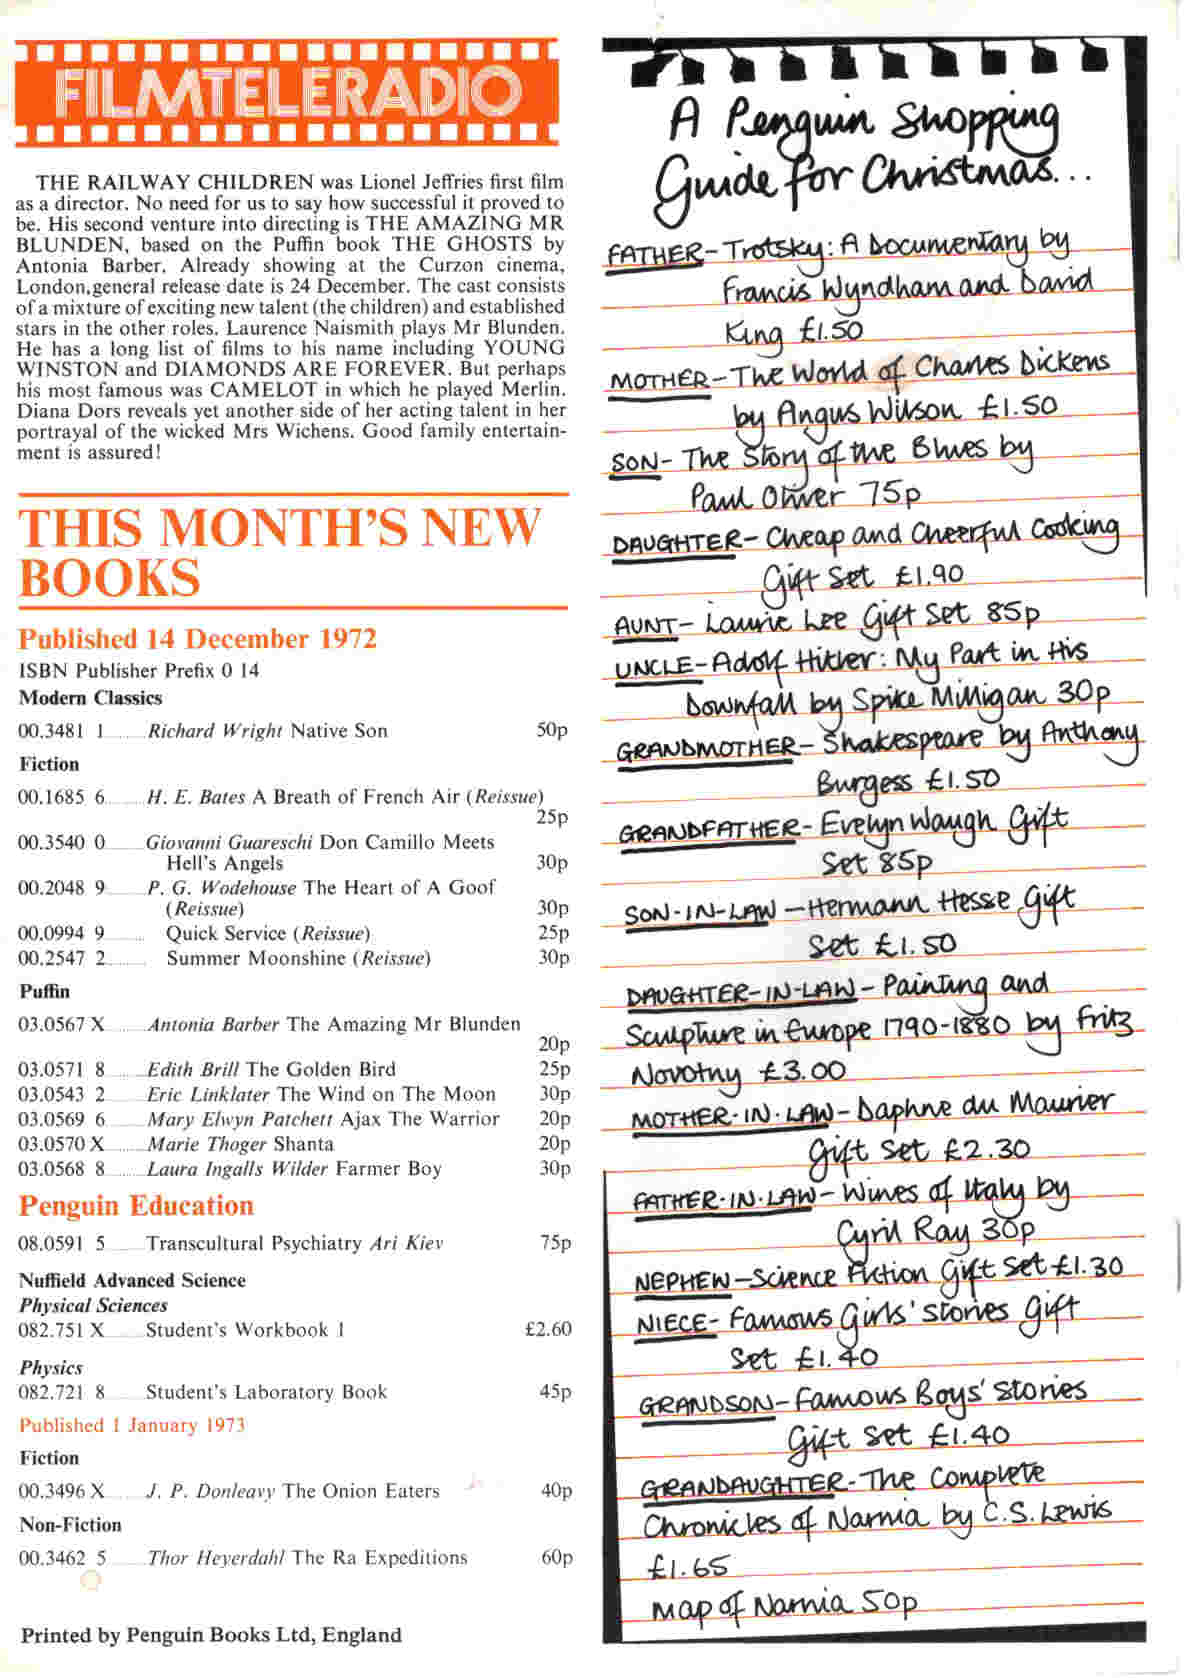 FILMTELERADIO
THE RAILWAY CHILDREN was Lionel Jeffries first film
as a director. No need for us to say how successful it proved to
be. His second venture into directing is THE AMAZING MR
BLUNDEN, based on the Puffin book THE GHOSTS by
Antonia Barber. Already showing at the Curzon cinema,
London,general release date is 24 December. The cast consists
of a mixture of exciting new talent (the children) and established
stars in the other roles. Laurence Naismith plays Mr Blunden.
He has a long list of films to his name including YOUNG
WINSTON and DIAMONDS ARE FOREVER. But perhaps
his most famous was CAMELOT in which he played Merlin.
Diana Dors reveals yet another side of her acting talent in her
portrayal of the wicked Mrs Wichens. Good family entertain-
ment is assured!
THIS MONTH'S NEW
BOOKS
Published 14 December 1972
ISBN Publisher Prefix 0 14
Modern Classics
00.3481 1........Richard Wright Native Son 50p
Fiction
00.1685 6........H. E. Bates A Breath of French Air (Reissue)
25p
00.3540 0........Giovanni Guareschi Don Camillo Meets
Hell's Angels 30p
00.2048 9........P. G. Wodehouse The Heart of A Goof
(Reissue) 30p
00.0994 9........ Quick Service (Reissue) 25p
00.2547 2........ Summer Moonshine (Reissue) 30p
Puffin
03.0567 X........Antonia Barber The Amazing Mr Blunden
20p
03.0571 8........Edith Brill The Golden Bird 25p
03.0543 2........Eric Linklater The Wind on The Moon 30p
03.0569 6........Mary Elwyn Patchett Ajax The Warrior 20p
03.0570 X........Marie Thoger Shanta 20p
03.0568 8........Laura Ingalls Wilder Farmer Boy 30p
Penguin Education
08.0591 5........Transcultural Psychiatry Ari Kiev 75p
Nuffield Advanced Science
Physical Sciences
082.751 X........Student's Workbook 1 £2.60
Physics
082.721 8........Student's Laboratory Book 45p
Published 1 January 1973
Fiction
00.3496 X........J. P. Donleavy The Onion Eaters 40p
Non-Fiction
00.3462 5........Thor Heyerdahl The Ra Expeditions 60p
Printed by Penguin Books Ltd, England
A Penguin Shopping
Guide for Christmas...
FATHER- Trotsky: A Documentary by
Francis Wyndham and David
King £1.50
MOTHER-The World of Charles Dickens
by Angus Wilson £1.50
SON- The Story of the Blues by
Paul Oliver 75p
DAUGHTER- Cheap and Cheerful Cooking
Gift Set £1.90
AUNT- Laurie Lee Gift Set 85p
UNCLE-Adolf Hitler: My Part in His
Downfall by Spike Milligan 30p
GRANDMOTHER- Shakespeare by Anthony
Burgess £1.50
GRANDFATHER- Evelyn Waugh Gift
Set 85p
SON-IN-LAW -Hermann Hesse Gift
Set £1.50
DAUGHTER-IN-LAW- Painting and
Sculpture in Europe 1790-1880 by Fritz
Novotny £3.00
MOTHER-IN-LAW- Daphne du Maurier
Gift Set £2.30
FATHER-IN-LAW- Wines of Italy by
Cyril Ray 30p
NEPHEW-Science Fiction Gift Set £1.30
NIECE- Famous Girls' Stories Gift
Set £1.40
GRANDSON-Famous Boys' Stories
Gift Set £1.40
GRANDAUGHTER-The Complete
Chronicles of Narnia by C.S. Lewis
£1.65
Map of Narnia 50p